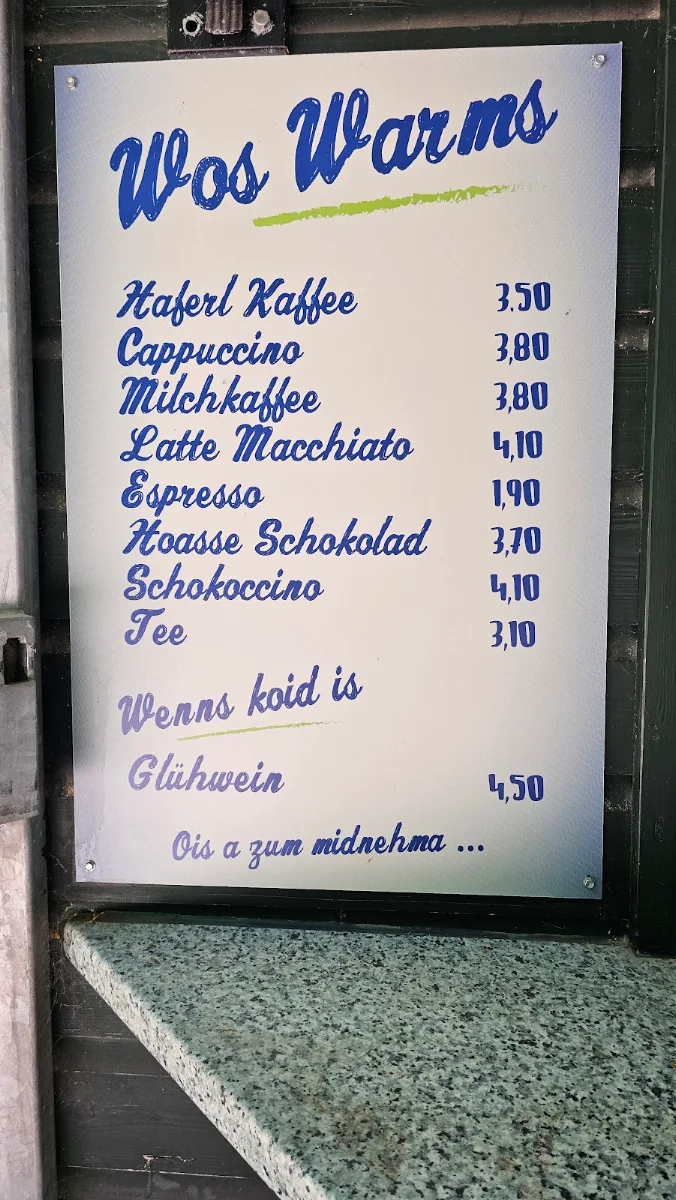 Wos Warms
Haferl Kaffee 3.50
Cappuccino 3,80
Milchkaffee 3,80
Latte Macchiato 4,10
Espresso 1,90
Hoasse Schokolad 3,70
Schokoccino 4,10
Tee 3,10
Wenns koid is
Glühwein 4,50
Ois a zum midnehma ...